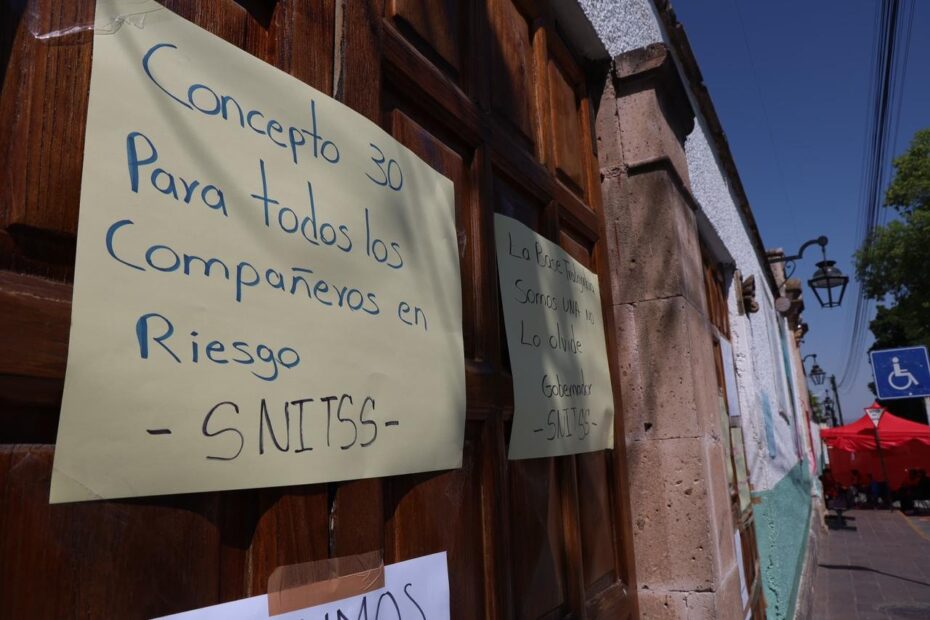 Concepto 30
Para todos los
Compañeros en
Riesgo
- SNITSS -
La Base Trabajadora
Somos UNA no
Lo olvide
Gobernador
- SNITSS -